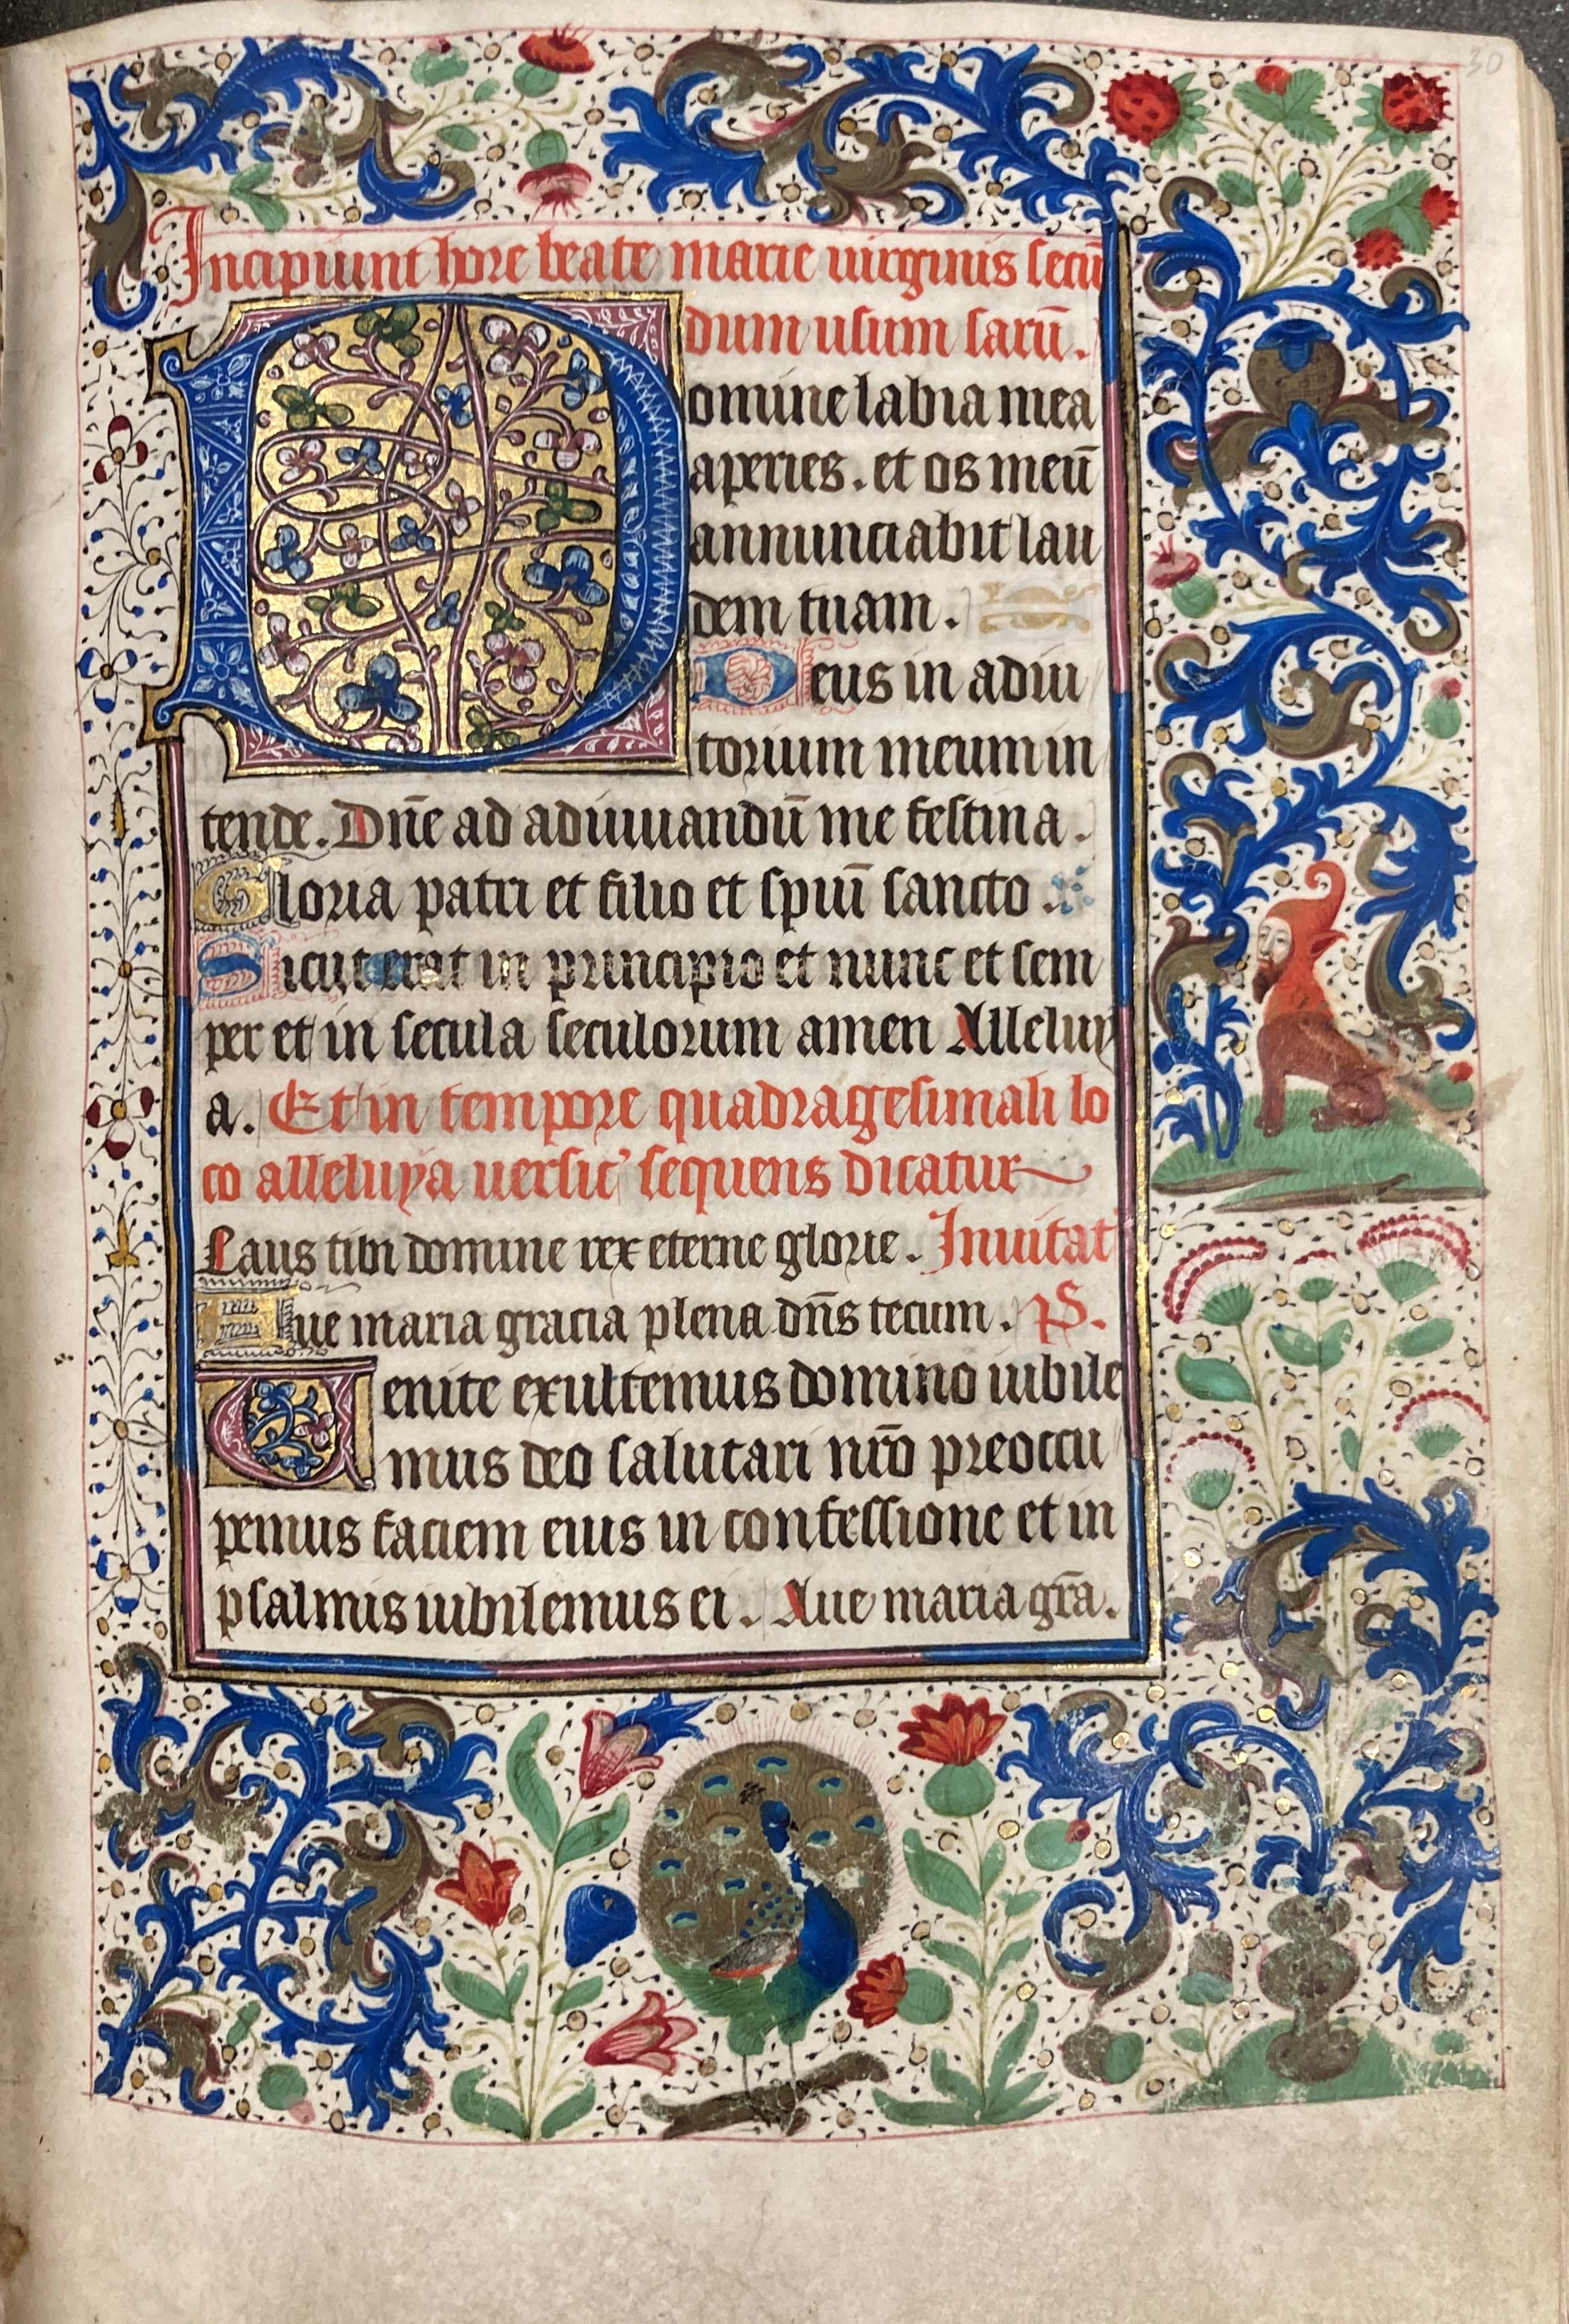 30
Incipiunt hore beate marie uirginis secū
dum usum sarū.
Domine labia mea
aperies. et os meū
annunciabit lau
dem tuam.
Deus in adiu
torium meum in
tende. Dn̄e ad adiuuandū me festina.
Gloria patri et filio et spiū sancto.
Sicut erat in principio et nunc et sem
per et in secula seculorum amen Alleluy
a. Et in tempore quadragesimali lo
co alleluya uersic' sequens dicatur
Laus tibi domine rex eterne glorie. Inuitat'
Aue maria gracia plena dn̄s tecum. PS.
Uenite exultemus domino iubile
mus deo salutari nr̄o preoccu
pemus faciem eius in confessione et in
psalmis iubilemus ei. Aue maria gr̄a.